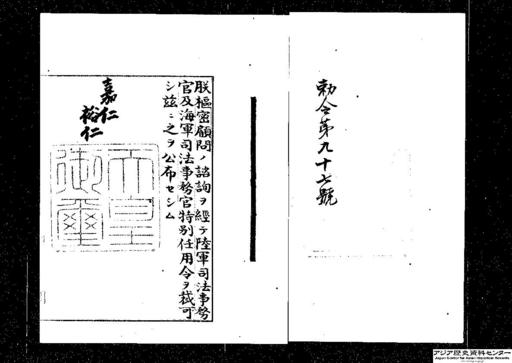 勅令第九十七號
朕樞密顧問ノ諮詢ヲ經テ陸軍司法事務
官及海軍司法事務官特別任用令ヲ裁可
シ茲ニ之ヲ公布セシム
嘉仁
裕仁
天皇
御璽
アジア歴史資料センター
Japan Center for Asian Historical Records